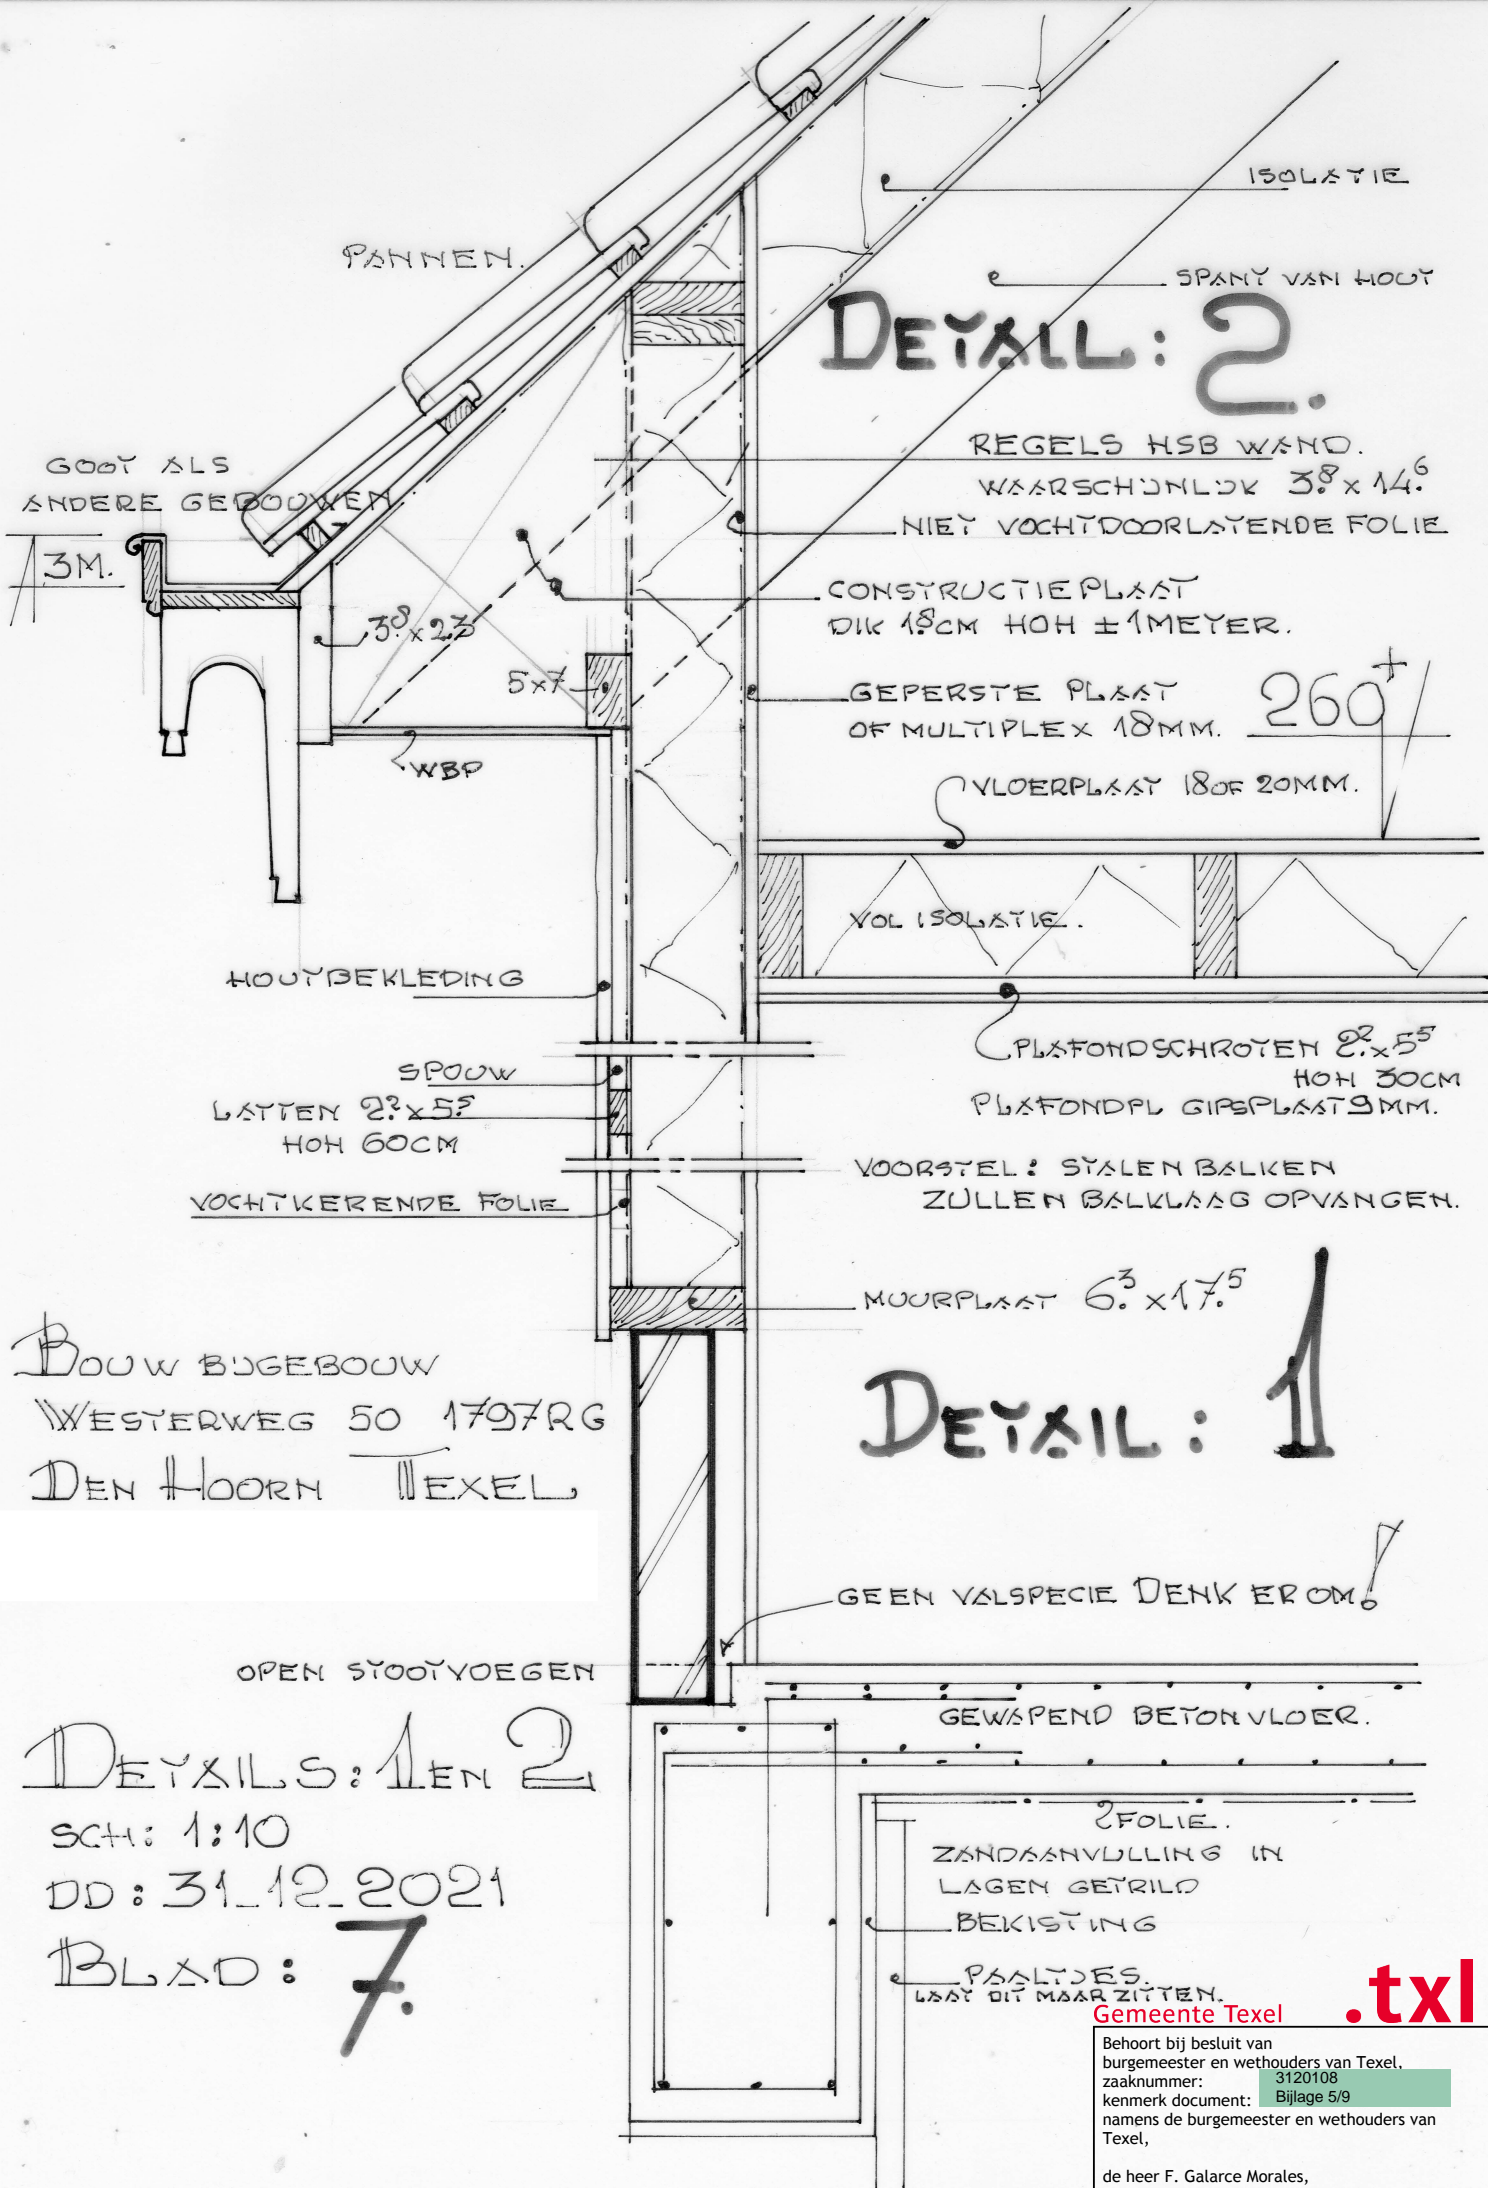 ISOLATIE
PANNEN.
SPANT VAN HOUT
DETAIL: 2.
GOOT ALS
ANDERE GEBOUWEN
REGELS HSB WAND.
WAARSCHIJNLIJK 3.8 x 14.6
NIET VOCHTDOORLATENDE FOLIE
3M.
CONSTRUCTIEPLAAT
DIK 1.8CM HOH ± 1METER.
3.8 x 23
5x7
GEPERSTE PLAAT
OF MULTIPLEX 18MM.
260+
WBP
VLOERPLAAT 18 OF 20MM.
VOL ISOLATIE.
HOUTBEKLEDING
PLAFONDSCHROTEN 2.2 x 5.5
HOH 30CM
PLAFONDPL GIPSPLAAT 9MM.
SPOUW
LATTEN 2.2 x 5.5
HOH 60CM
VOORSTEL: STALEN BALKEN
ZULLEN BALKLAAG OPVANGEN.
VOCHTKERENDE FOLIE
MUURPLAAT 6.3 x 17.5
BOUW BIJGEBOUW
WESTERWEG 50 1797RG
DEN HOORN TEXEL
DETAIL: 1
GEEN VALSPECIE DENK EROM!
OPEN STOOTVOEGEN
GEWAPEND BETONVLOER.
DETAILS: 1 EN 2
SCH: 1:10
DD: 31_12_2021
BLAD: 7.
FOLIE.
ZANDAANVULLING IN
LAGEN GETRILD
BEKISTING
PAALTJES.
LAAT DIT MAAR ZITTEN.
Gemeente Texel .txl
Behoort bij besluit van
burgemeester en wethouders van Texel,
zaaknummer: 3120108
kenmerk document: Bijlage 5/9
namens de burgemeester en wethouders van
Texel,
de heer F. Galarce Morales,